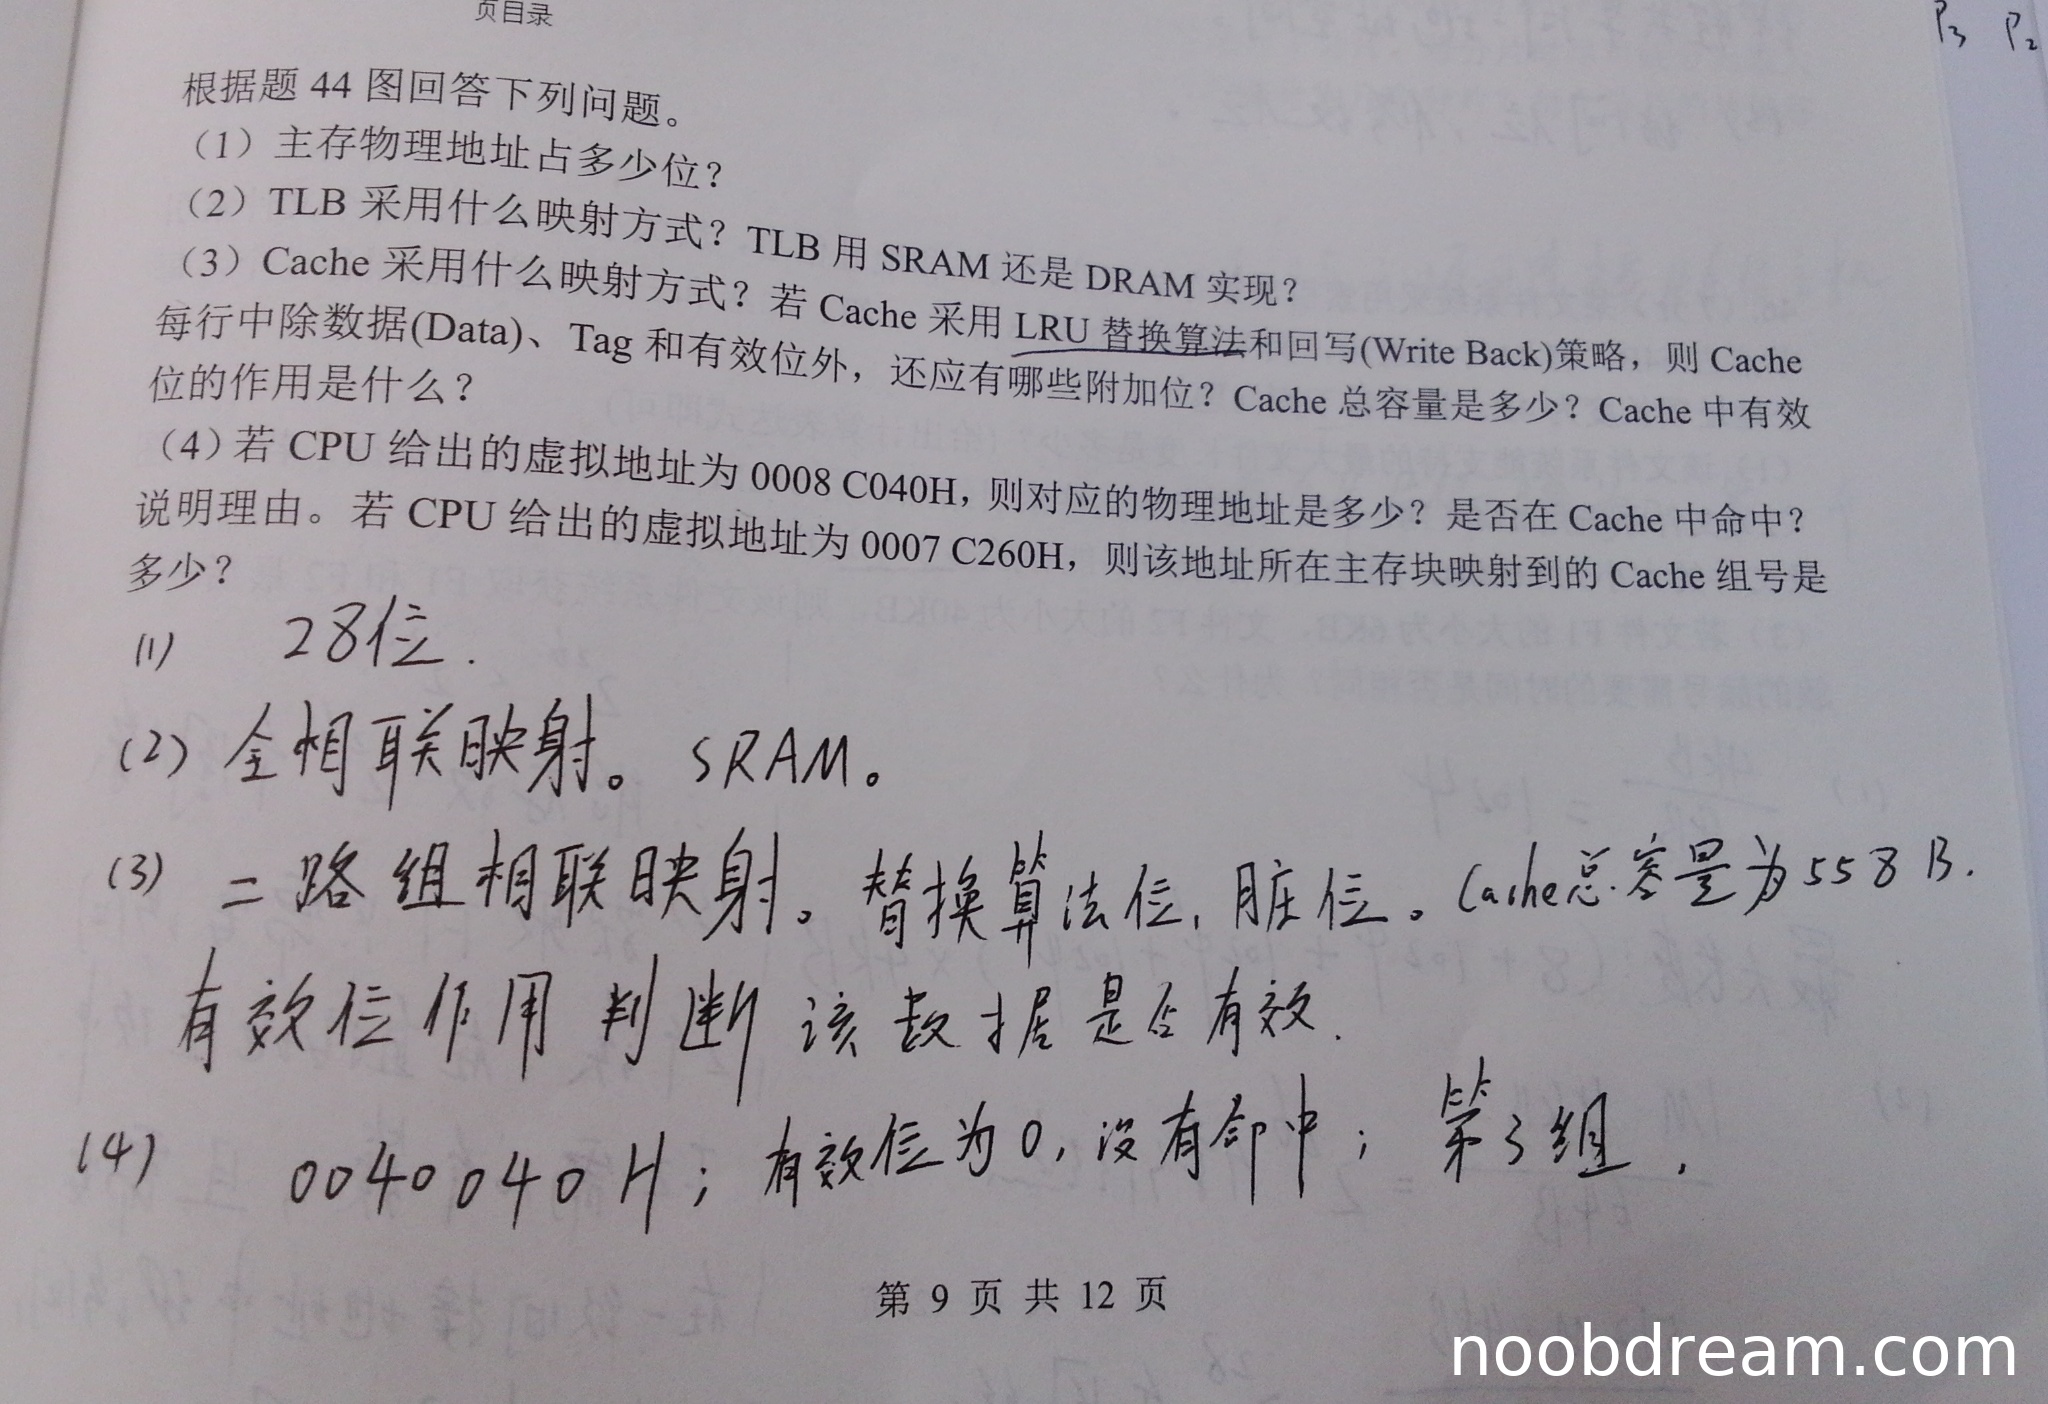 页目录
P3 P2
根据题 44 图回答下列问题。
（1）主存物理地址占多少位？
（2）TLB 采用什么映射方式？TLB 用 SRAM 还是 DRAM 实现？
（3）Cache 采用什么映射方式？若 Cache 采用 LRU 替换算法和回写(Write Back)策略，则 Cache
每行中除数据(Data)、Tag 和有效位外，还应有哪些附加位？Cache 总容量是多少？Cache 中有效
位的作用是什么？
（4）若 CPU 给出的虚拟地址为 0008 C040H，则对应的物理地址是多少？是否在 Cache 中命中？
说明理由。若 CPU 给出的虚拟地址为 0007 C260H，则该地址所在主存块映射到的 Cache 组号是
多少？
(1) 28位.
(2) 全相联映射。SRAM。
(3) 二路组相联映射。替换算法位, 脏位。Cache总容量为558B.
有效位作用 判断该数据是否有效.
(4) 0040040H; 有效位为0, 没有命中; 第3组.
第 9 页 共 12 页
noobdream.com